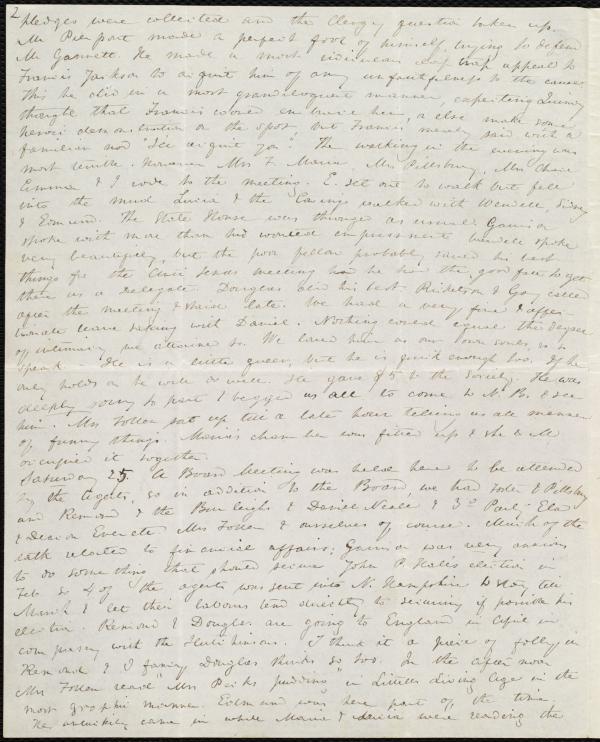 2
pledges were collected and the Clergy question taken up.
Mr Pierpont made a perfect fool of himself trying to defend
Mr Gannett. He made a most ridiculous clap trap appeal to
Francis Jackson to acquit him of any unfaithfulness to the cause
This he did in a most grandiloquent manner, expecting Quincy
thought that Francis would embrace him, or else make some
heroic demonstration on the spot, but Francis merely said with a
familiar nod "I'll acquit you". The walking in the evening was
most terrible. However Mrs F. Maria, Mrs Pillsbury, Mrs Chace
Emma & I rode to the meeting. E. set out to walk but fell
into the mud Lucia & the Cousins walked with Wendell, Sidney
& Edmund. The State House was thronged as usual. Garrison
spoke with more than his wonted impressment Wendell spoke
very beautifully, but the poor fellow probably saved his best
things for the meeting had he the good fate to get
there as a delegate. Douglass did his best. Ricketson & Gay called
after the meeting & staid late. We had a very fine & affec-
tionate leave taking with Daniel. Nothing could equal the degree
of intimacy we attained to. We loved him as our own souls, so to
speak. He is a little queer, but he is quick enough too. If he
only holds on he will do well. He gave $5 to the Society. He was
deeply sorry to part & begged us all to come to N. B. & see
him. Mrs Follen sat up till a late hour telling us all manner
of funny things. Maria's chamber was fitted up & she & M
occupied it together.
Saturday 25. A Board Meeting was held here to be attended
by the Agents, so in addition to the Board, we had Foster & Pillsbury
and Remond & the Burleighs & Daniel Neall & 3d Party Ela
& Deacon Everett. Mrs Follen & ourselves of course. Much of the
talk related to financial affairs; Garrison was very anxious
to do something that should secure John P. Hale's election in
Feb & 4 of the agents was sent into N. Hampshire to stay till
March & let their labours tend directly to securing if possible his
election. Remond & Douglass are going to England in April in
company with the Hutchinsons. I think it a piece of folly in
Remond & I fancy Douglass thinks so too. In the after noon
Mrs Follen read "Mrs Perkins pudding" in Littells Living Age in the
most graphic manner. Edmund was here part of the time.
He unluckily came in while Maria & Lucia were reading the